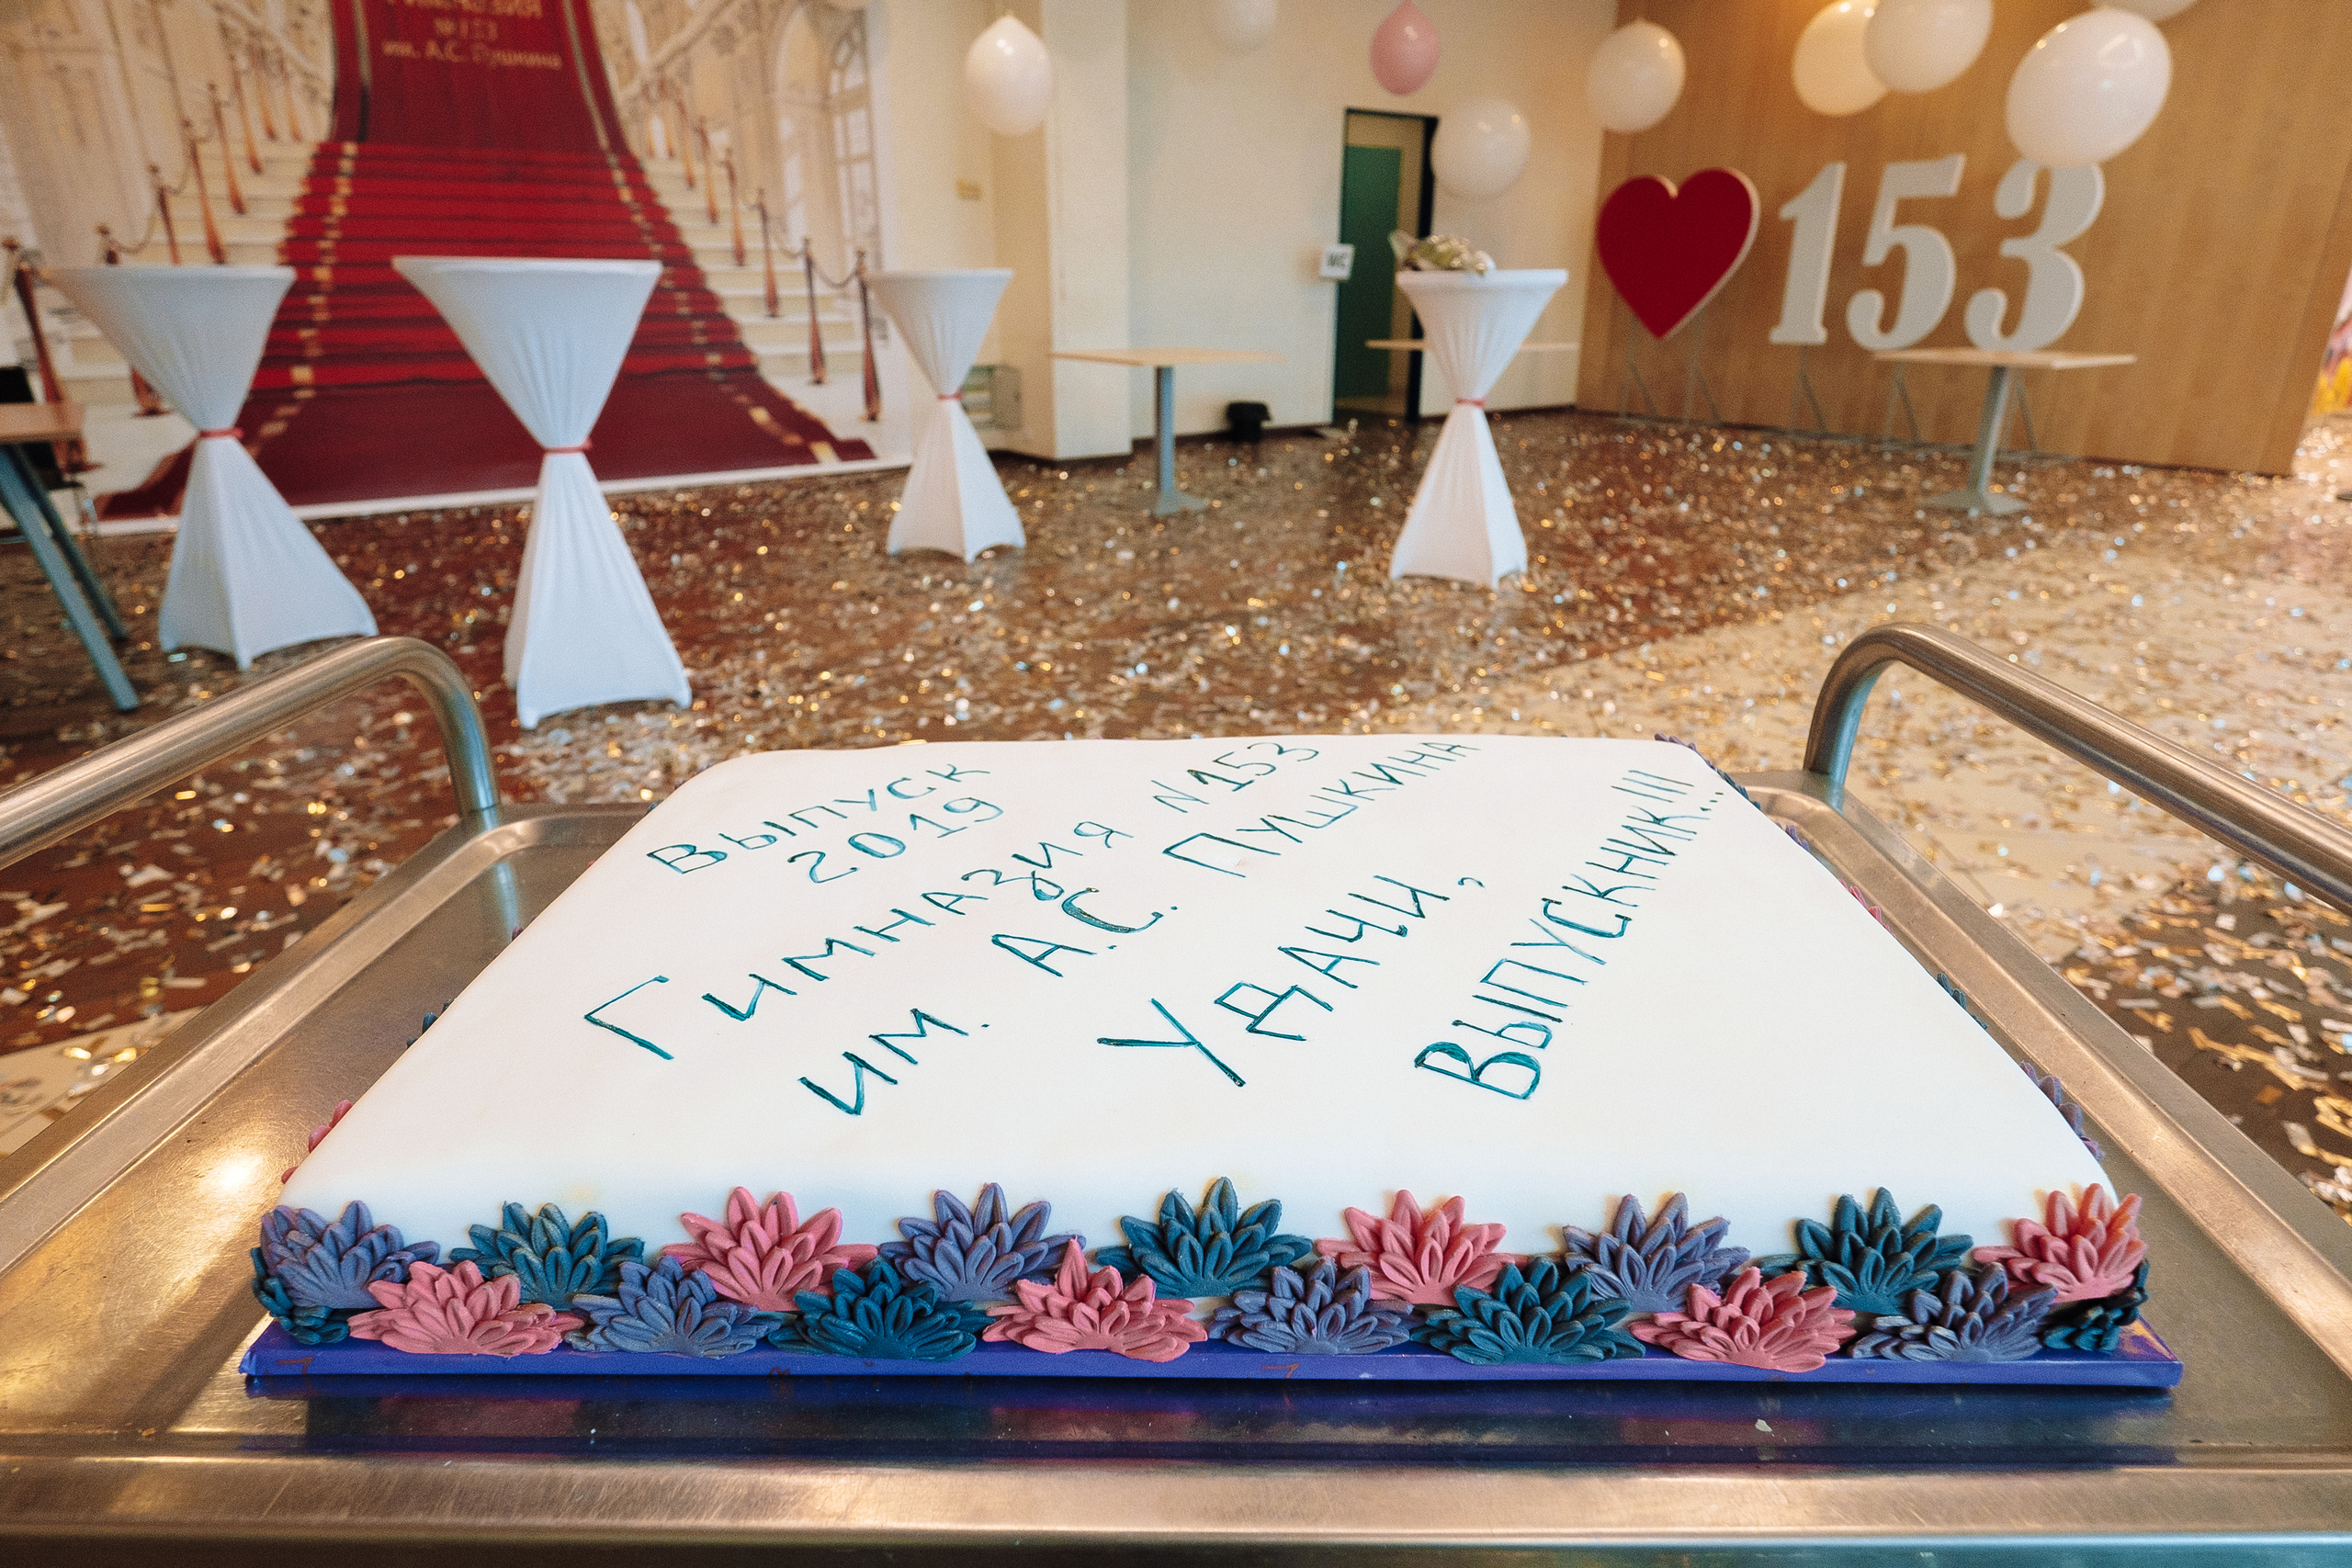 ГИМНАЗИЯ
№153
им. А.С. Пушкина
WC
153
Выпуск
2019
Гимназия №153
им. А.С. Пушкина
Удачи,
Выпускник!!!